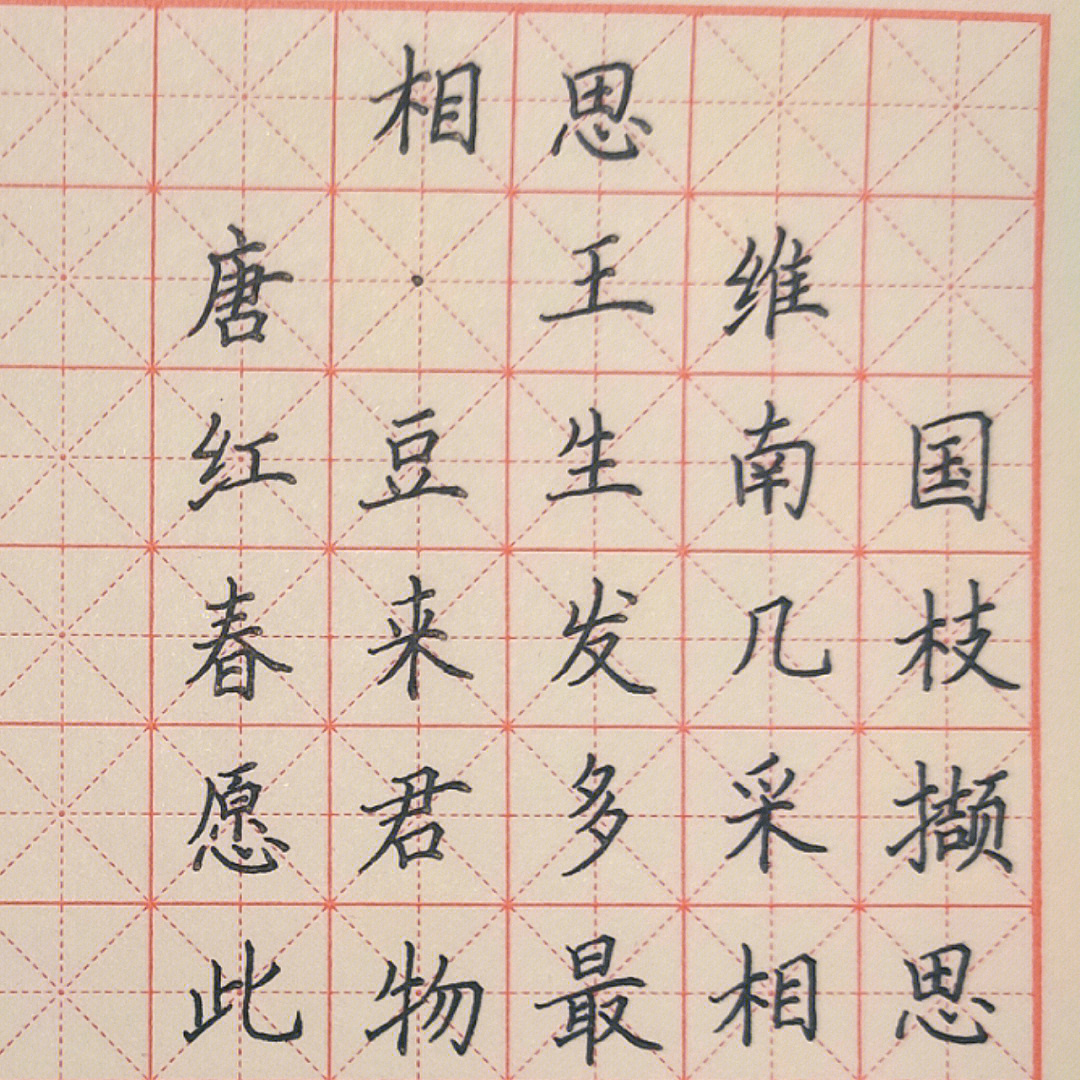 相思
唐·王维
红豆生南国
春来发几枝
愿君多采撷
此物最相思